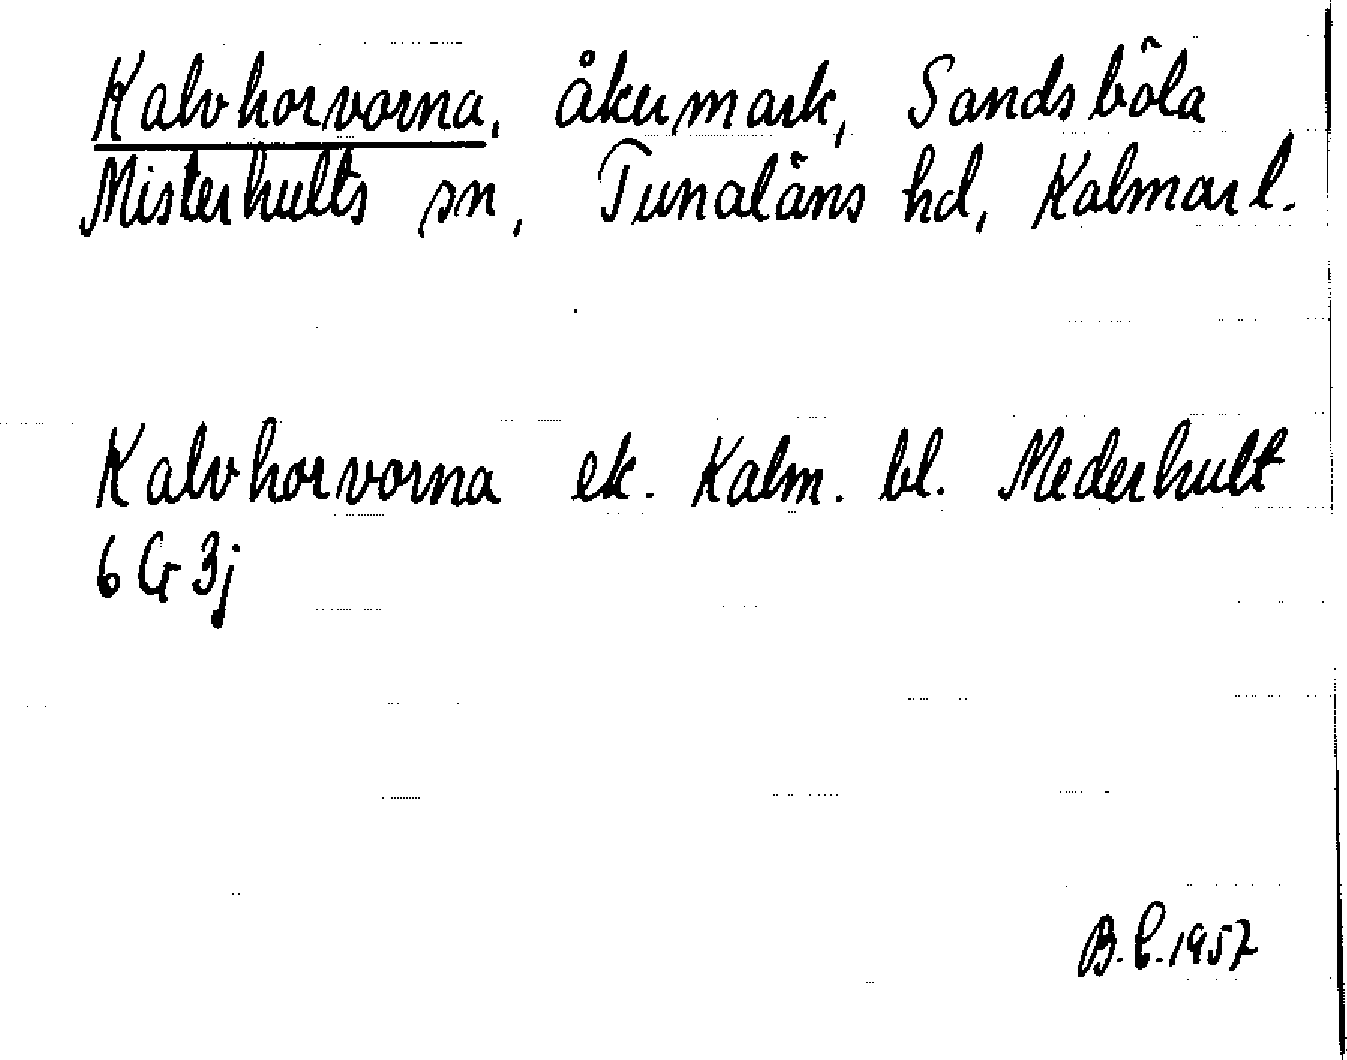 Kalvhorvorna, åkermark, Sandsböla
Misterhults sn, Tunaläns hd, Kalmar l.
Kalvhorvorna ek. Kalm. bl. Mederhult
6 G 3j
B.C. 1957